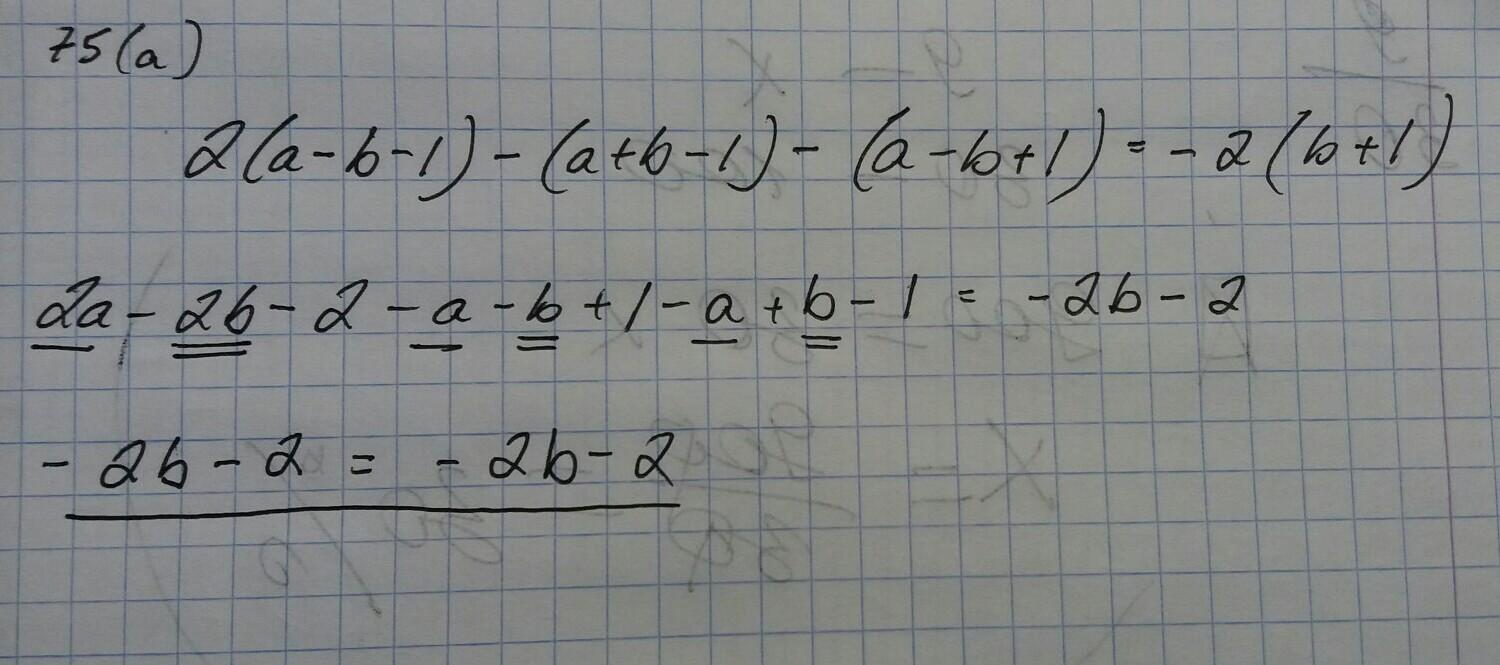 75(a)
2(a-b-1)-(a+b-1)-(a-b+1)=-2(b+1)
2a-2b-2-a-b+1-a+b-1=-2b-2
-2b-2=-2b-2